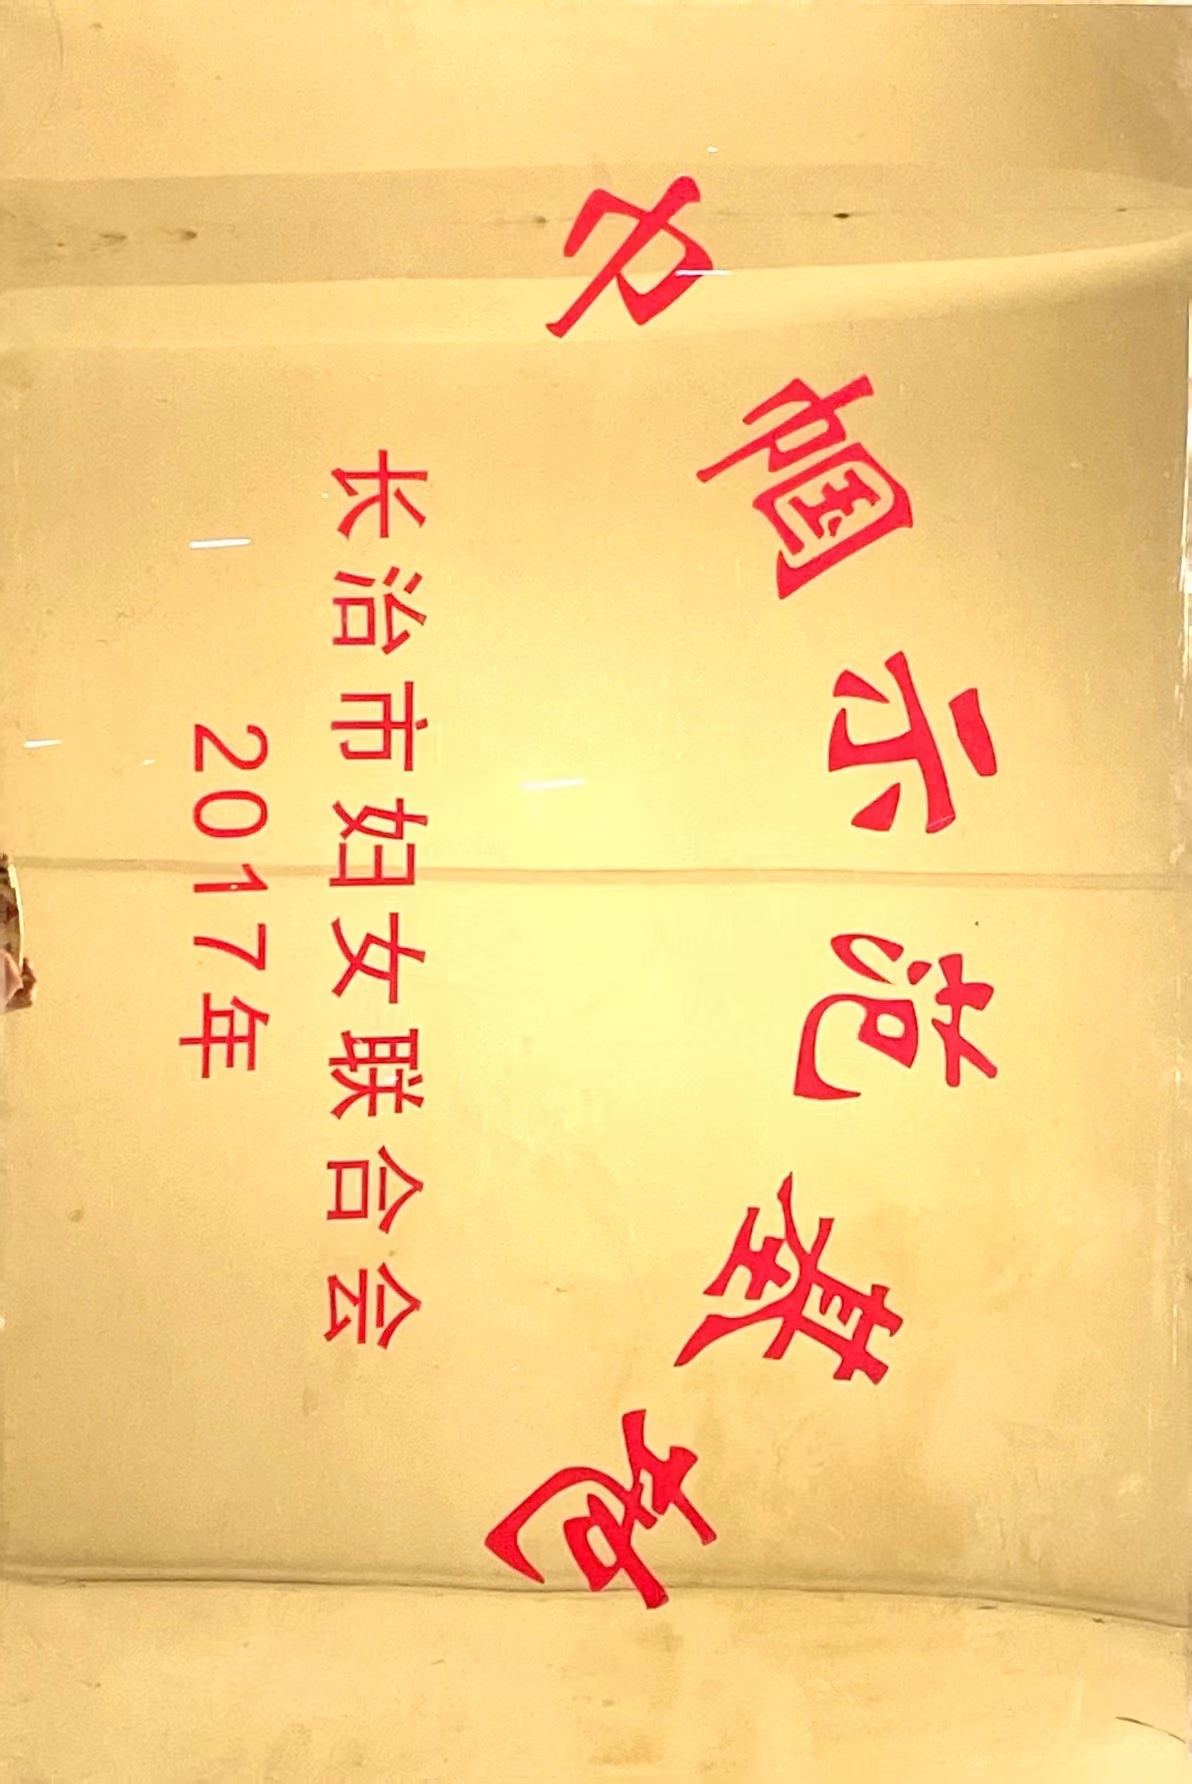 巾帼示范基地
长治市妇女联合会
2017年